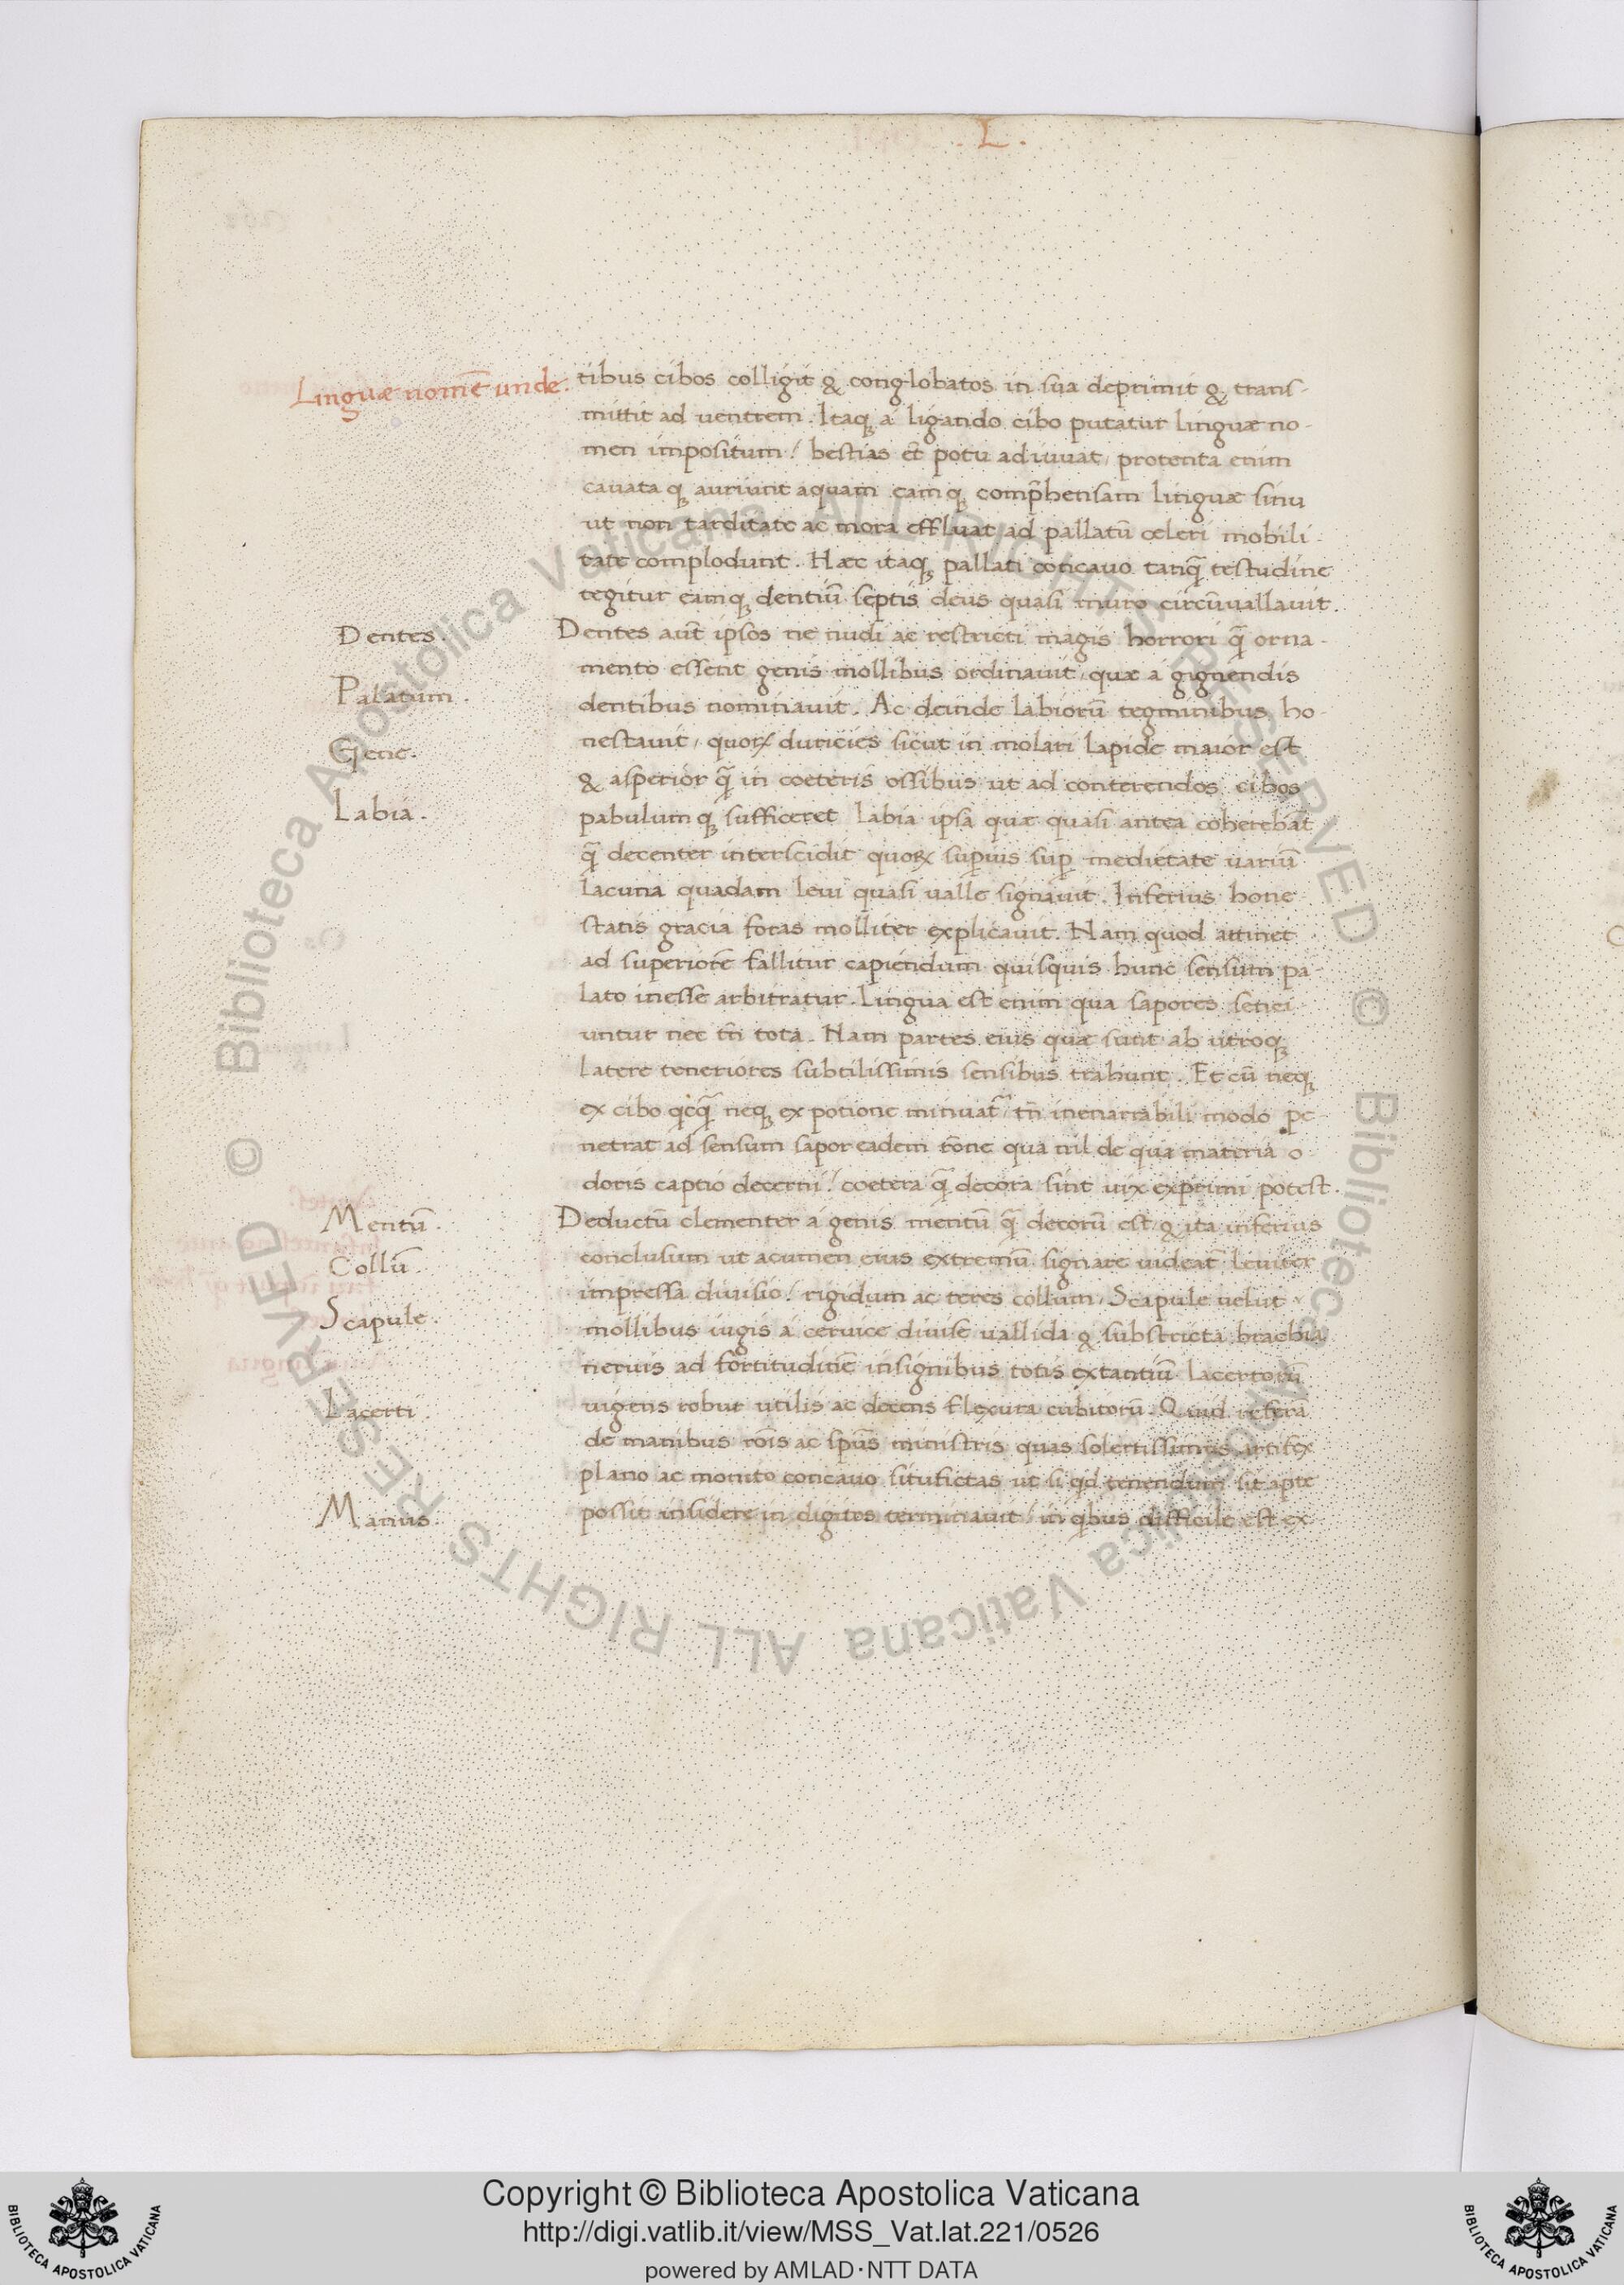 . L .
Linguæ nomē unde.
tibus cibos colligit & conglobatos in sua deprimit & trans-
mittit ad ventrem. Itaq; a ligando cibo putatur linguæ no-
men impositum! bestias et potu adiuuat, protenta enim
cauata q; auriunt aquam eamq; comp̄hensam linguæ sinu
ut non tarditate ac mora effluat ad pallatū celeri mobili-
tate complodunt. Hæc itaq; pallati concauo tanq̄ testudine
tegitur eamq; dentiū septis deus quasi muro circūuallauit.
Dentes.
Dentes aūt ipsos ne nudi ac restricti magis horrori q̄ orna-
mento essent genis mollibus ordinauit, quæ a gignendis
Palatum.
dentibus nominauit. Ac deinde labiorū tegminibus ho-
Gene.
nestauit, quoꝝ duricies sicut in molari lapide maior est
& asperior q̄ in coeteris ossibus ut ad conterendos cibos
Labia.
pabulum q; sufficeret labia ipsa quæ quasi antea coherebāt
q̄ decenter interscidit quoꝝ sup̱ius sup̱ medietate nariū
lacuna quadam leui quasi ualle signauit. Inferius hone
statis gracia foras molliter explicauit. Nam quod attinet
ad saperiorē fallitur capiendum quisquis hunc sensum pa-
lato inesse arbitratur. Lingua est enim qua sapores senci
untur nec tn̄ tota. Nam partes eius quæ sunt ab utroq;
latere teneriores subtilissimis sensibus trahunt. Et cū neq;
ex cibo qcq̄ neq; ex potione minuat̄ tn̄ inenarrabili modo pe
netrat ad sensum sapor eadem rōne qua nil de qua materia o
doris captio decerni! coetera q̄ decora sint uix exprimi potest.
Mentū.
Deductū clementer a genis mentū q̄ decorū est & ita inferius
Collū.
conclusum ut acumen eius extremū signare uideat̄ leuiter
impressa diuisio! rigidum ac teres collum, Scapule uelut
Scapule.
mollibus iugis a ceruice diuise uallida & substricta brachia
neruis ad fortitudinē insignibus totis extantiū lacertorū
Lacerti
uigens robur utilis ac decens flexura cubitorū. Quid referā
de manibus rōis ac sp̱ūs ministris quas solertissimus artifex
plano ac monito concauo situfictas ut si qd tenendum sit apte
Manus.
possit insidere in digitos terminauit! in qbus difficile est ex
Copyright © Biblioteca Apostolica Vaticana
http://digi.vatlib.it/view/MSS_Vat.lat.221/0526
powered by AMLAD·NTT DATA
BIBLIOTECA APOSTOLICA VATICANA
BIBLIOTECA APOSTOLICA VATICANA
© Biblioteca Apostolica Vaticana ALL RIGHTS RESERVED © Biblioteca Apostolica Vaticana ALL RIGHTS RESERVED